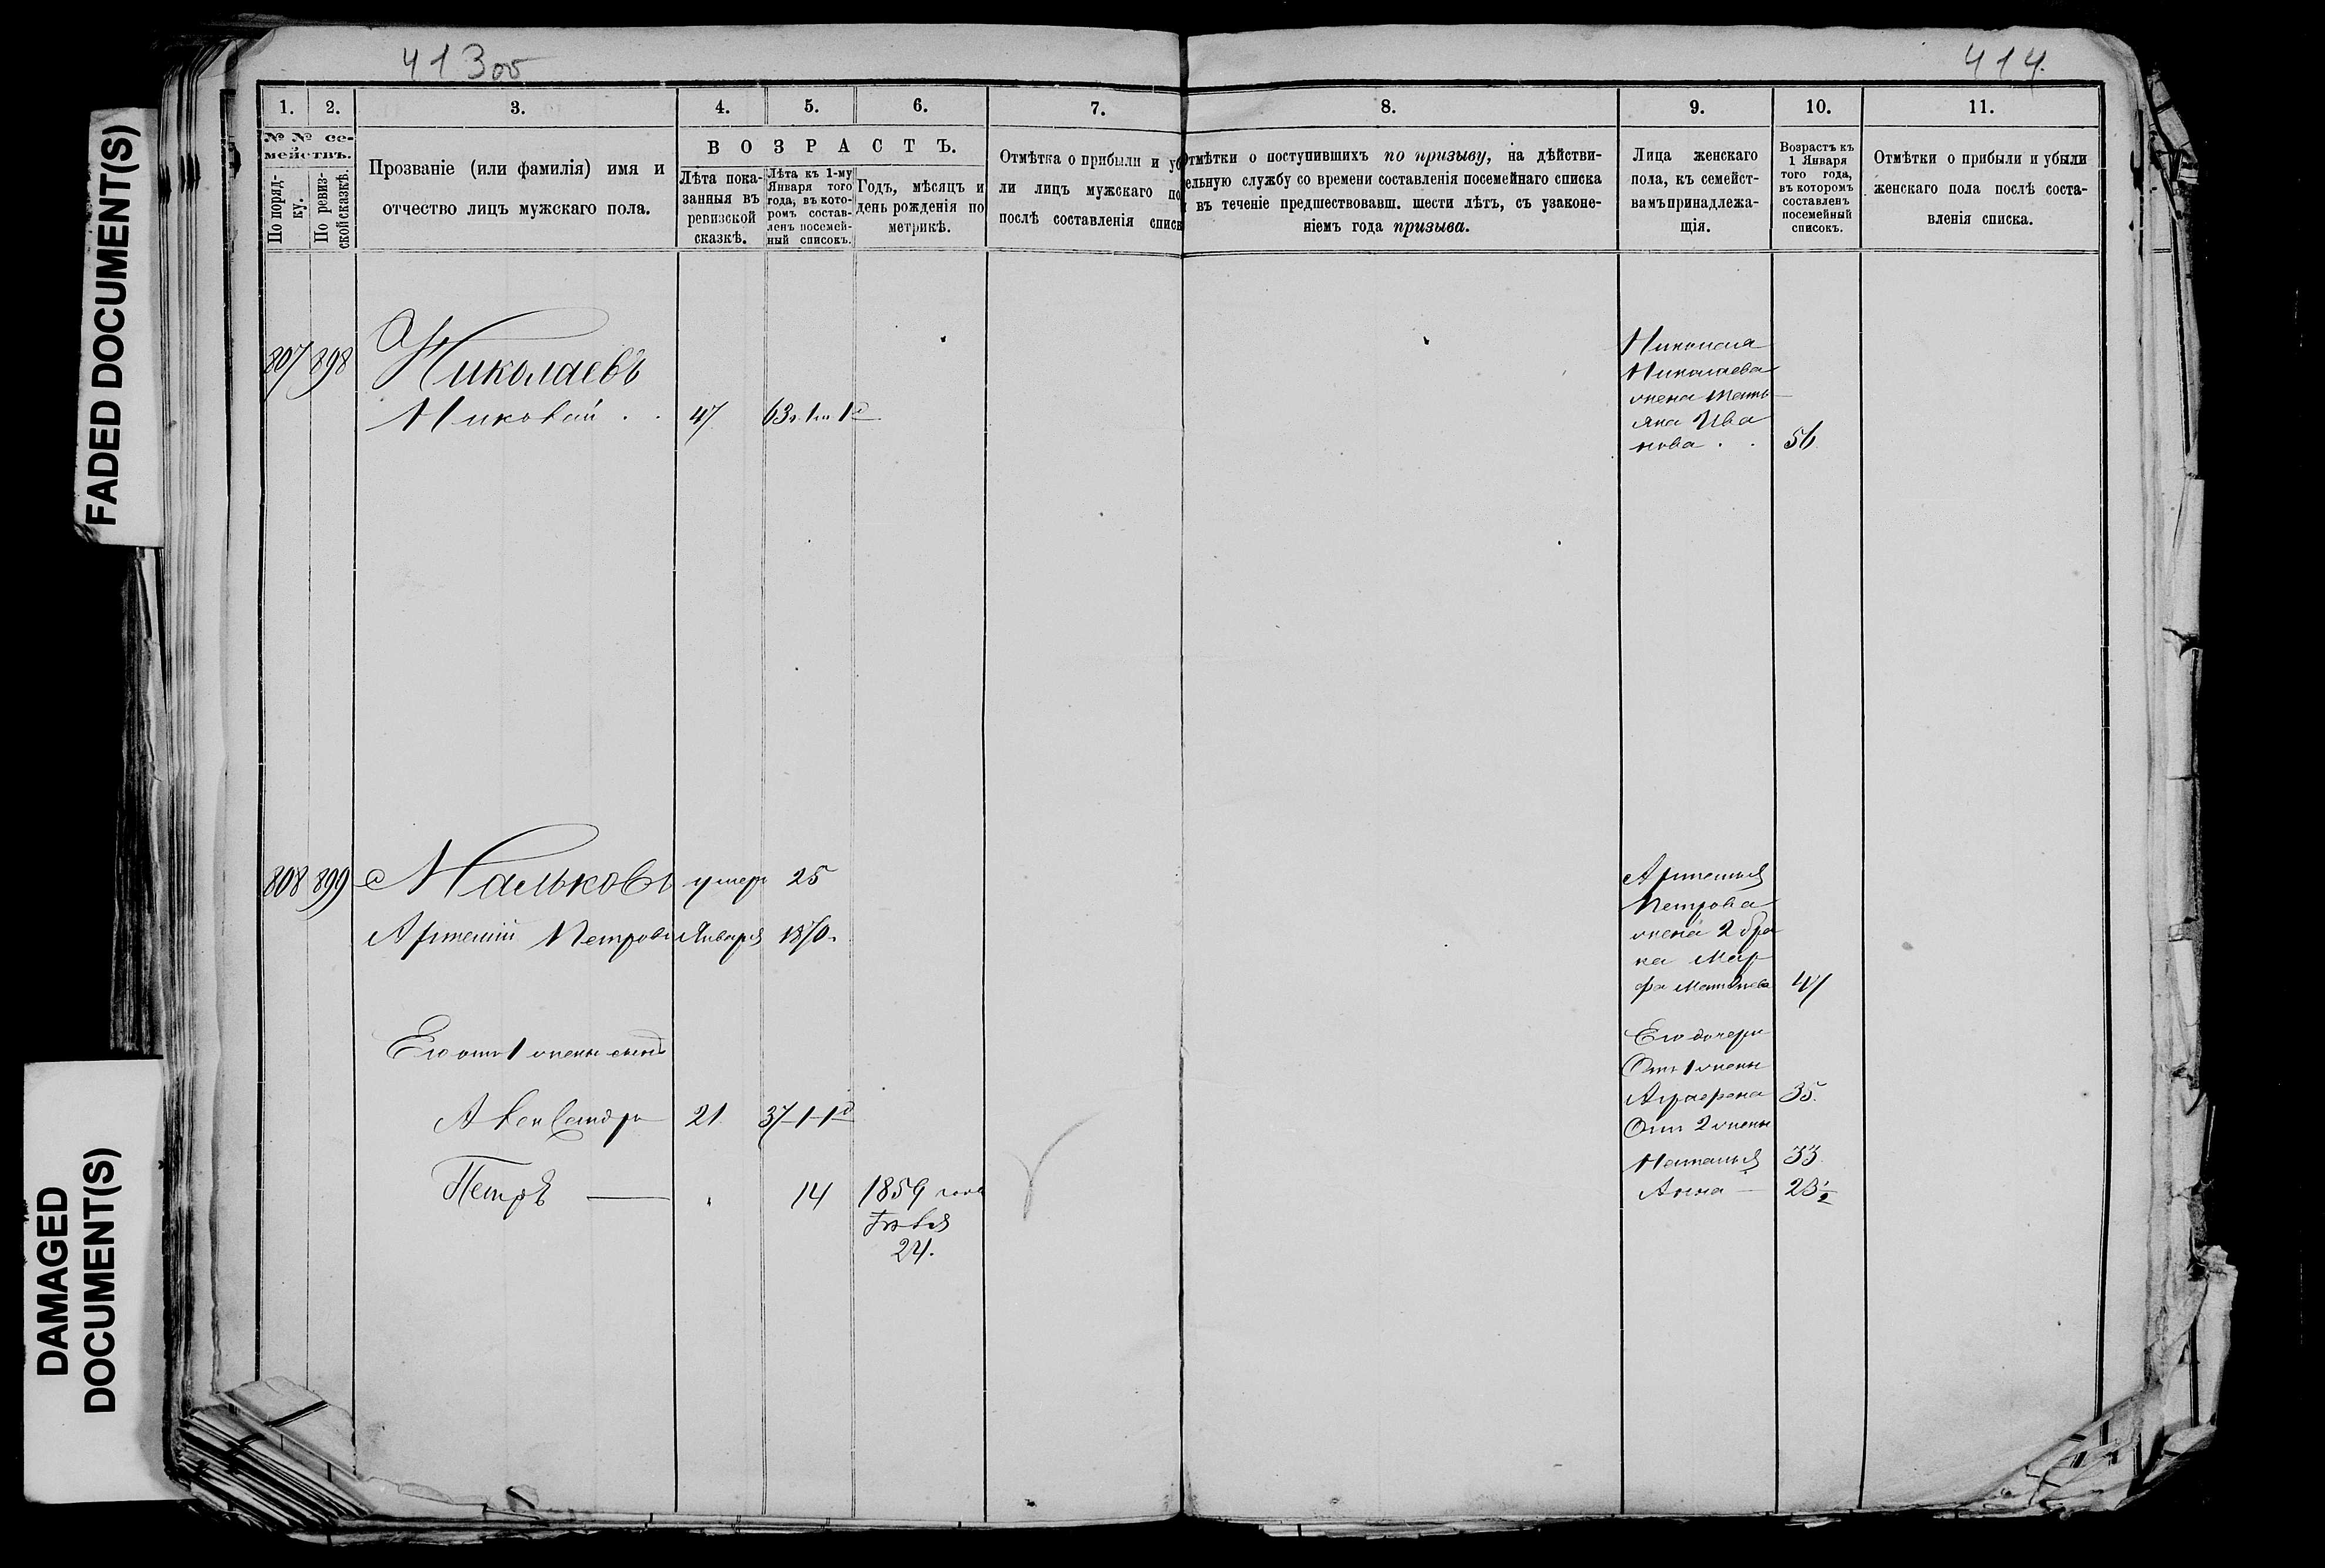 FADED DOCUMENT(S)
DAMAGED
DOCUMENT(S)
413об
414.
1.
2.
3.
4.
5.
6.
7.
8.
9.
10.
11.
№ № се-
мействъ.
По поряд-
ку.
По ревиз-
ской сказкѣ.
Прозваніе (или фамилія) имя и
отчество лицъ мужскаго пола.
ВОЗРАСТЪ.
Лѣта пока-
занныя въ
ревизской
сказкѣ.
Лѣта къ 1-му
Января того
года, въ кото-
ромъ состав-
ленъ посемей-
ный списокъ.
Годъ, мѣсяцъ и
день рожденія по
метрикѣ.
Отмѣтка о прибыли и уб
ли лицъ мужскаго по
послѣ составленія списк
Отмѣтки о поступившихъ по призыву, на дѣйстви-
ельную службу со времени составленія посемейнаго списка
въ теченіе предшествовавш. шести лѣтъ, съ узаконе-
ніемъ года призыва.
Лица женскаго
пола, къ семейст-
вамъ принадлежа-
щія.
Возрастъ къ
1 Января
того года,
въ которомъ
составленъ
посемейный
списокъ.
Отмѣтки о прибыли и убыли
женскаго пола послѣ соста-
вленія списка.
807 898 Николаевъ
Николай 47 63г. 1м. 1д
Николая
Николаева
жена Тать
яна Ива
нова 56
808 899 Мальковъ умеръ 25
Артемій Петровъ Января 1870.
Его отъ 1 жены сынъ
Александръ 21 37-1-1д
Петръ 14 1859 года
Іюля
24.
Артемья
Петрова
жена 2 бра
ка Мар
фа Матвѣева 47
Его дочери
Отъ 1 жены
Аграфена 35.
Отъ 2 жены
Наталья 33
Анна 23½